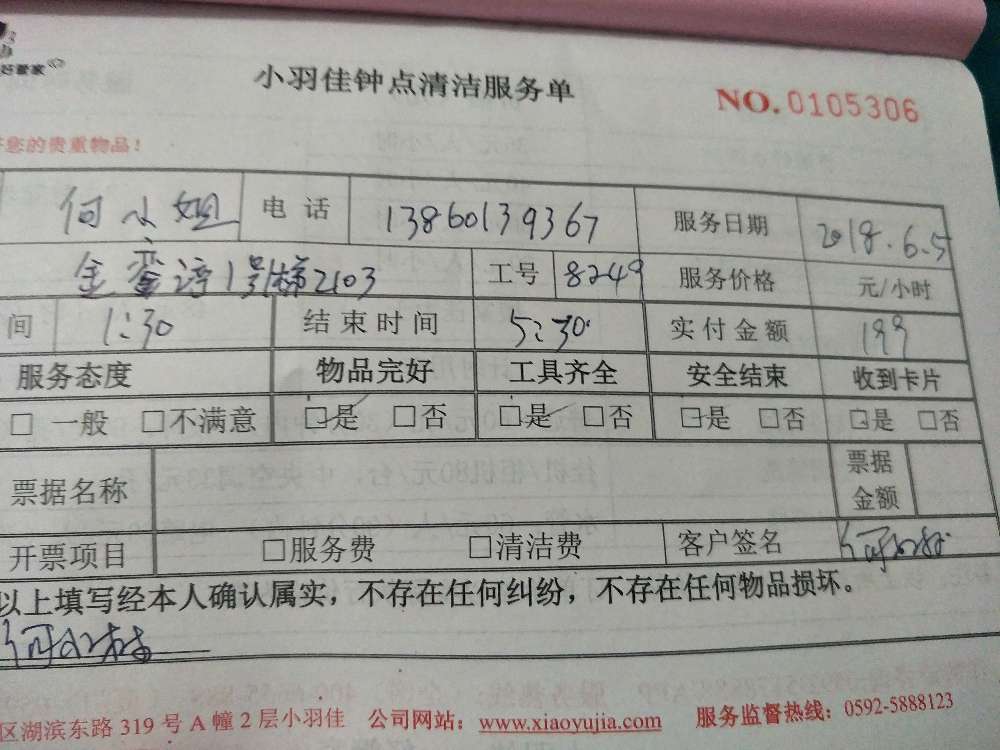 好管家
小羽佳钟点清洁服务单
NO. 0105306
您的贵重物品！
何小姐 电话 13860139367 服务日期 2018.6.5
金 湾 1号梯2103 工号 8249 服务价格 元/小时
间 1:30 结束时间 5:30 实付金额 199
服务态度 物品完好 工具齐全 安全结束 收到卡片
□ 一般 □不满意 □是 □否 □是 □否 □是 □否 □是 □否
票据名称 票据金额
开票项目 □服务费 □清洁费 客户签名
以上填写经本人确认属实，不存在任何纠纷，不存在任何物品损坏。
区湖滨东路 319 号 A 幢 2 层小羽佳 公司网站：www.xiaoyujia.com 服务监督热线：0592-5888123